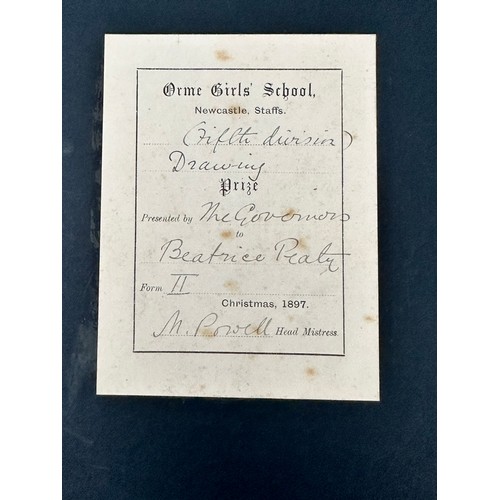 Orme Girls' School,
Newcastle, Staffs.
(Fifth division)
Drawing
Prize
Presented by The Governors
to
Beatrice Peaty
Form II
Christmas, 1897.
M. Powell Head Mistress.